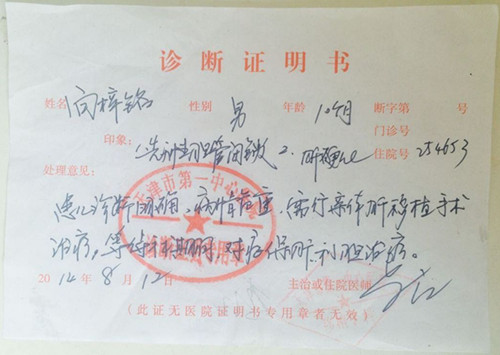 诊断证明书
姓名 向梓铭 性别 男 年龄 10个月 断字第 号
门诊号
印象: 1.先天性胆管闭锁 2.肝硬化 住院号 254653
处理意见:
患儿诊断明确,病情危重,需行亲体肝移植手术
治疗,等待手术期间,对症保肝、利胆治疗。
2014年8月12日 主治或住院医师
(此证无医院证明书专用章者无效)
天津市第一中心医院